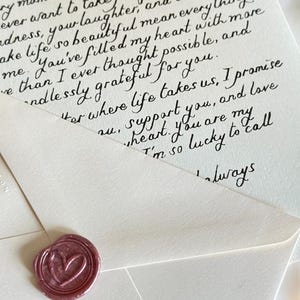 ry mom
ever want to take
dness, your laughter, and
ake life so beautiful mean everything
me. You've filled my heart with more
ve than I ever thought possible, and
endlessly grateful for you.
tter where life takes us, I promise
ou, support you, and love
heart. you are my
I'm so lucky to call
always